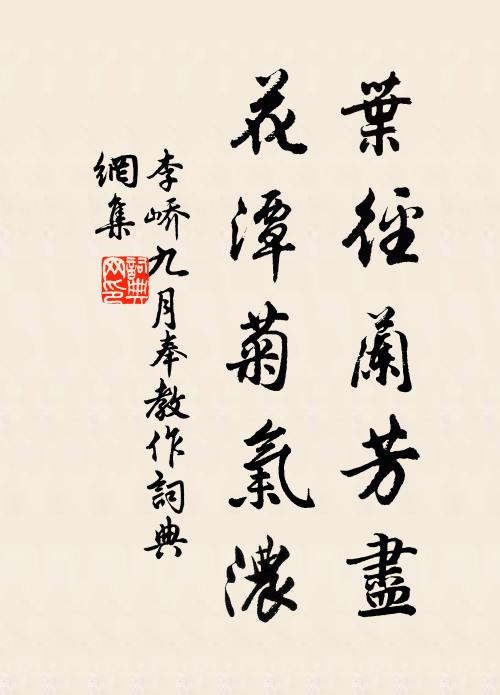 葉徑蘭芳盡
花潭菊氣濃
李嶠九月奉教作詞典
網集
詞典網印